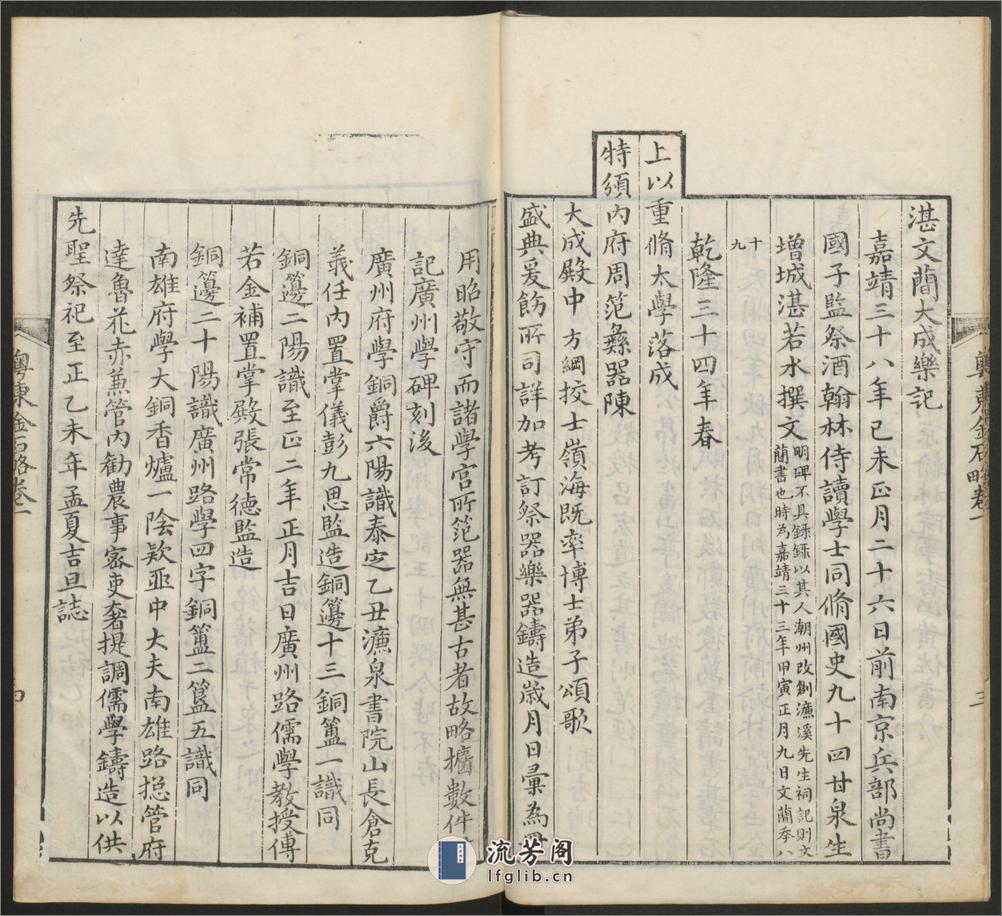 湛文蕳大成樂記
嘉靖三十八年己未正月二十六日前南京兵部尚書
國子監祭酒翰林侍讀學士同脩國史九十四甘泉生
增城湛若水撰文明碑不具錄錄以其人潮州改創濂溪先生祠記則文
蕳書也時為嘉靖三十三年甲寅正月九日文蕳季八
十
九
乾隆三十四年春
上以重脩太學落成
特頒內府周范彝器陳
大成殿中方綱挍士嶺海既率博士弟子頌歌
盛典爰飭所司詳加考訂祭器樂器鑄造歲月日彚為
用昭敬守而諸學宮所范器無甚古者故略攟數件
記廣州學碑刻後
廣州府學銅爵六陽識泰定乙丑濂泉書院山長倉克
義任內置掌儀彭九思監造銅籩十三銅簠一識同
銅籩二陽識至正二年正月吉日廣州路儒學教授傅
若金補置掌殿張常德監造
銅籩二十陽識廣州路學四字銅簠二簋五識同
南雄府學大銅香爐一陰欵亞中大夫南雄路揔管府
達魯花赤蒹管內勸農事密吏奢提調儒學鑄造以供
先聖祭祀至正乙未年孟夏吉旦誌
粵東金石略卷一
三
粵東金石略卷一
四
流芳阁
lfglib.cn